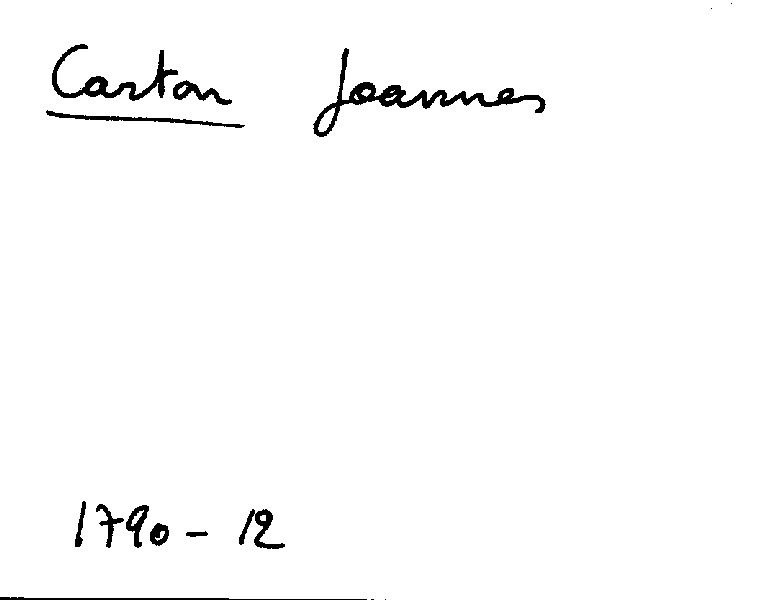 Carton Joannes
1790 - 12